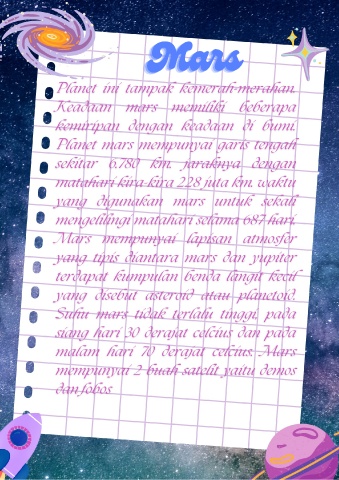 Mars
Planet ini tampak kemerah-merahan.
Keadaan mars memiliki beberapa
kemiripan dengan keadaan di bumi.
Planet mars mempunyai garis tengah
sekitar 6.780 km. jaraknya dengan
matahari kira-kira 228 juta km. waktu
yang digunakan mars untuk sekali
mengelilingi matahari selama 687 hari.
Mars mempunyai lapisan atmosfer
yang tipis diantara mars dan yupiter
terdapat kumpulan benda langit kecil
yang disebut asteroid atau planetoid.
Suhu mars tidak terlalu tinggi, pada
siang hari 30 derajat celcius dan pada
malam hari 70 derajat celcius. Mars
mempunyai 2 buah satelit yaitu demos
dan fobos